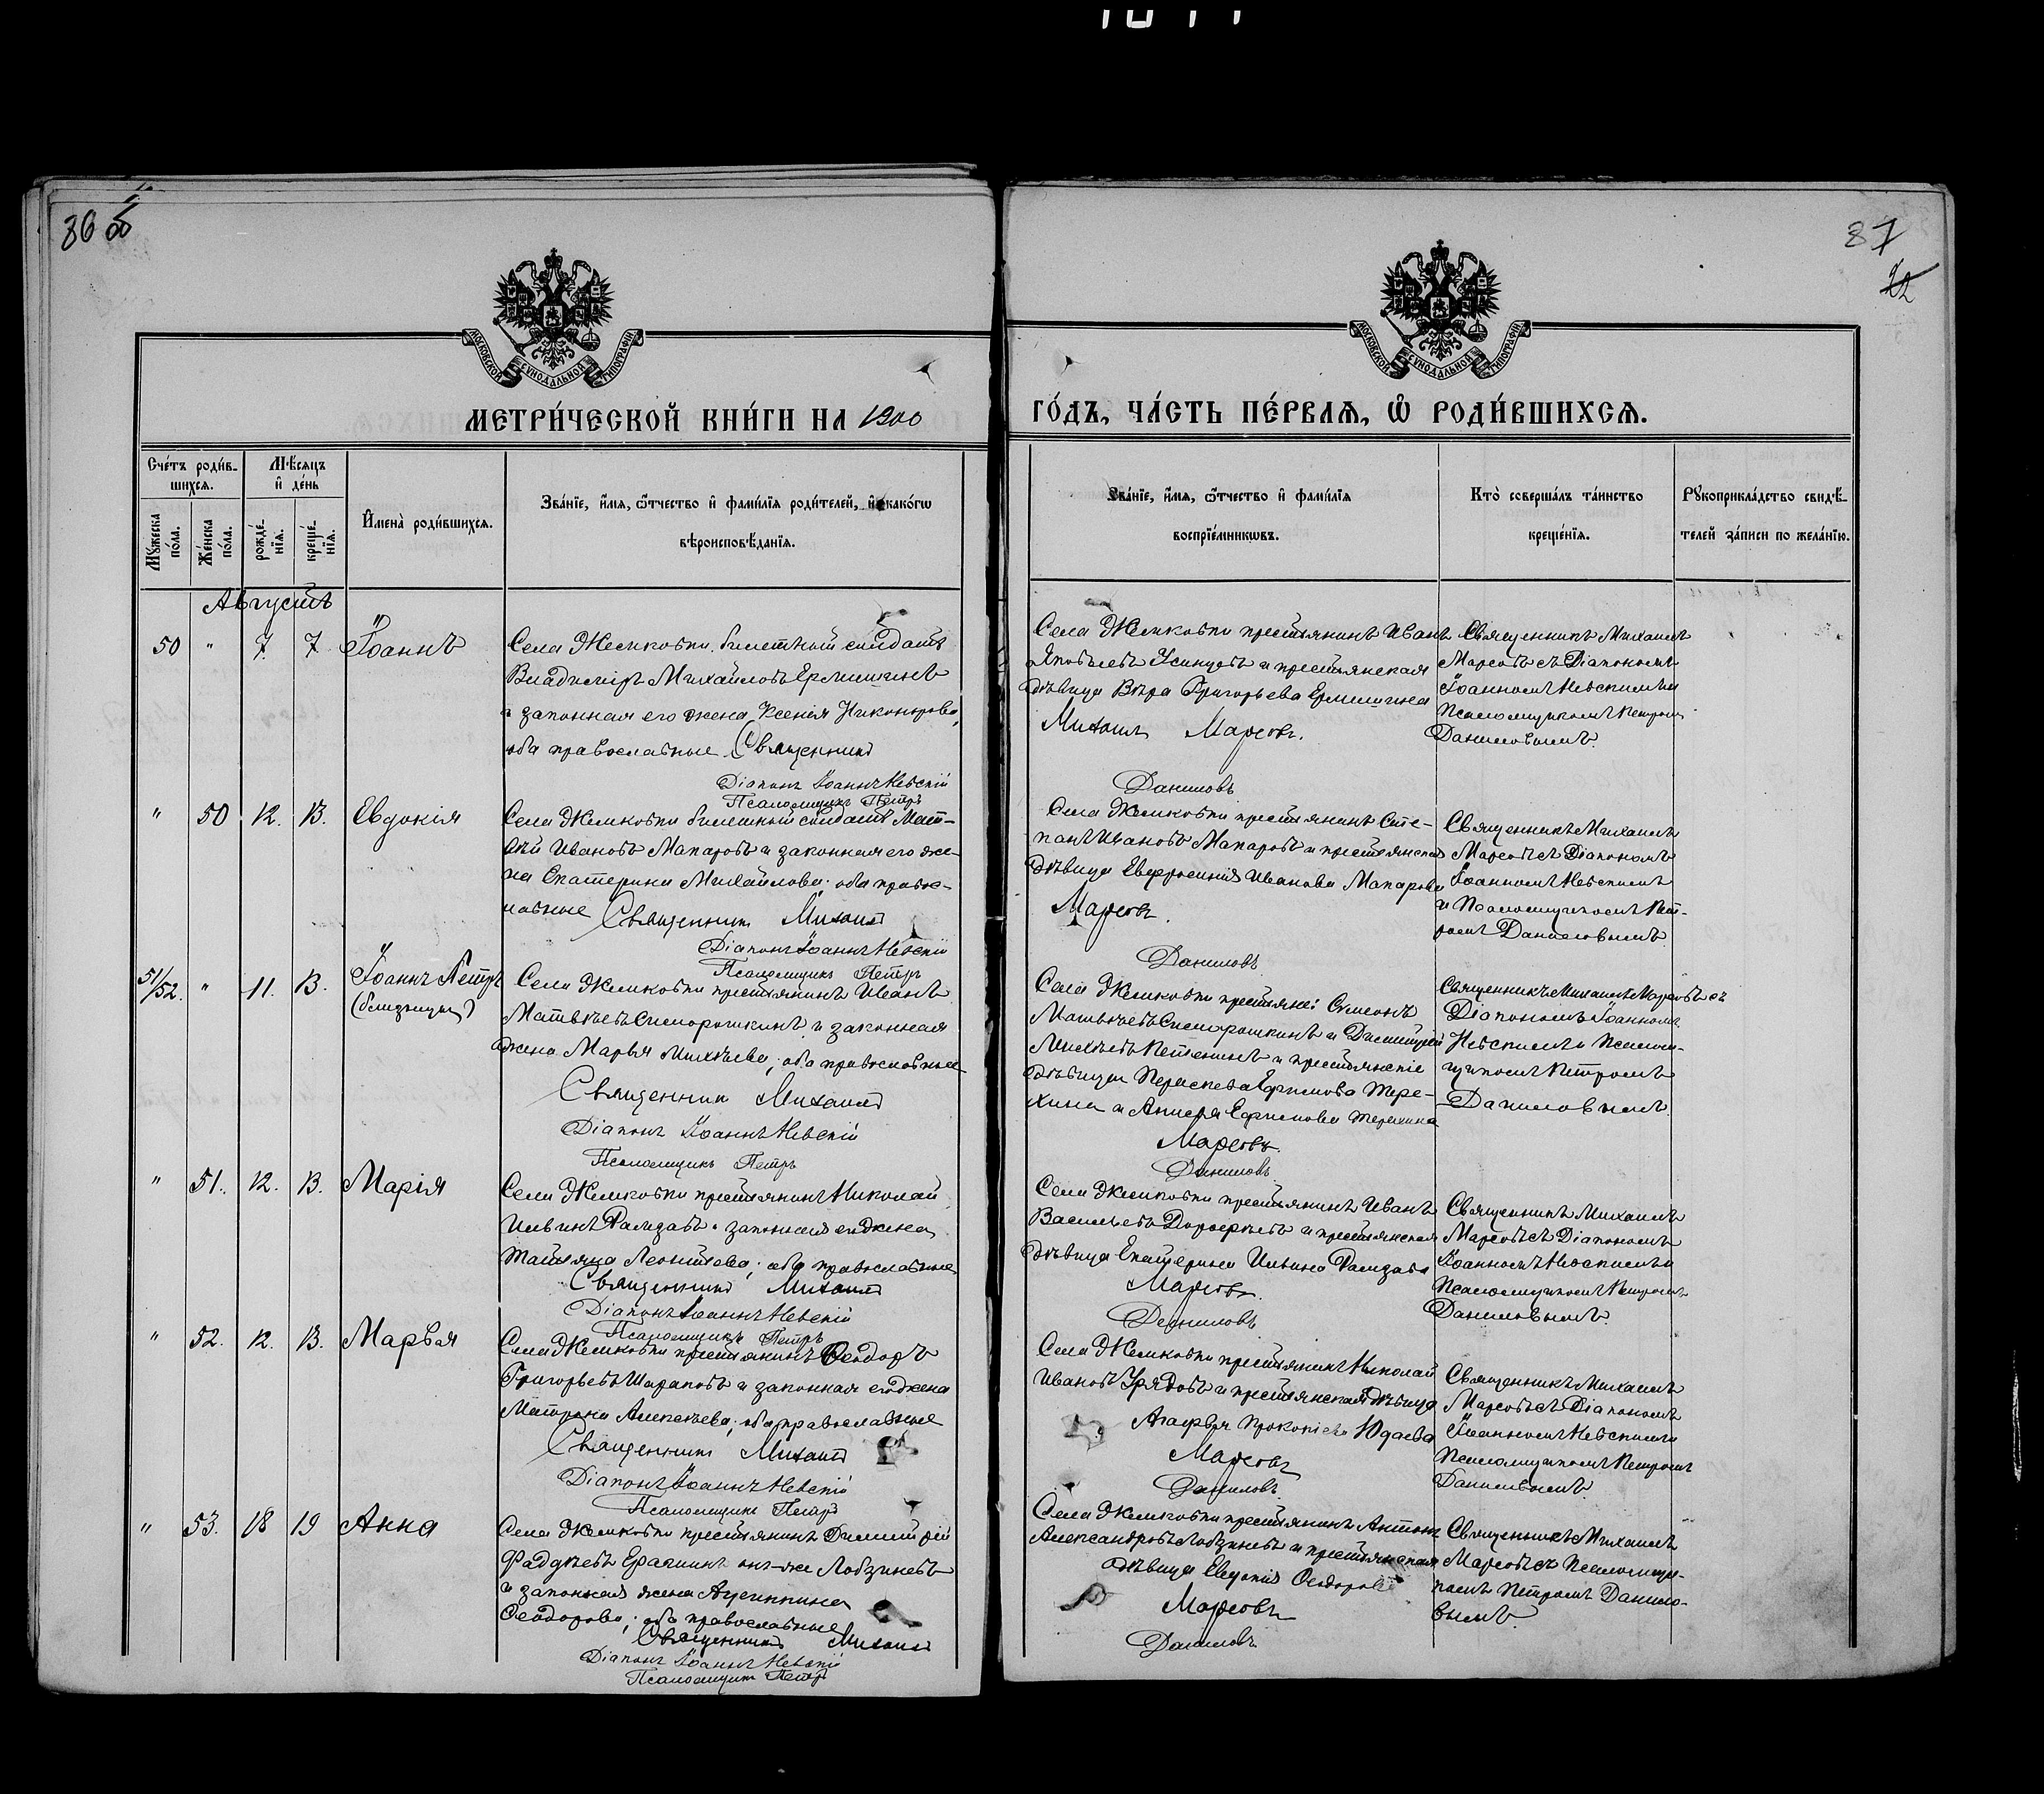 86 об
87
МОСКОВСКОЙ СУНОДАЛЬНОЙ ТИПОГРАФІИ
МОСКОВСКОЙ СУНОДАЛЬНОЙ ТИПОГРАФІИ
МЕТРИ́ЧЕСКОЙ КНИ́ГИ НА 1900
ГО́ДЪ, ЧА́СТЬ ПЕ́РВАѦ, Ѡ РОДИ́ВШИХСѦ.
Сче́тъ роди́в-
шихсѧ.
Мѣ́сѧцъ
и҆ де́нь
Мꙋ́жеска по́ла.
Же́нска по́ла.
рожде́-
нїѧ.
креще́-
нїѧ.
И҆мена̀ роди́вшихсѧ.
Зва́нїе, и҆́мѧ, ѻ҆́тчество и҆ фами́лїѧ роди́телей, и҆ како́гѡ
вѣроисповѣ́данїѧ.
Зва́нїе, и҆́мѧ, ѻ҆́тчество и҆ фами́лїѧ
воспрїе́мникѡвъ.
Кто̀ соверша́лъ та́инство
креще́нїѧ.
Рꙋкоприкла́дство свидѣ́-
телей за́писи по жела́нїю.
Августъ
50 " 7. 7. Іоаннъ
Села Жемковки билетный солдатъ
Владиміръ Михайловъ Ермишинъ
и законная его жена Ксенія Никонорова,
оба православные. Священникъ
Діаконъ Іоаннъ Невскій
Псаломщикъ Петръ
Села Жемковки крестьянинъ Иванъ
Яковлевъ и крестьянская
дѣвица Вѣра Григорьева Ермишина
Михаилъ Марсовъ.
Даниловъ
Священникъ Михаилъ
Марсовъ съ Діакономъ
Іоанномъ Невскимъ и
Псаломщикомъ Петромъ
Даниловымъ.
" 50 12. 13. Евдокія
Села Жемковки билетный солдатъ Мат-
вѣй Ивановъ Макаровъ и законная его же-
на Екатерина Михайлова; оба правос-
лавные Священникъ Михаилъ
Діаконъ Іоаннъ Невскій
Псаломщикъ Петръ
Села Жемковки крестьянинъ Сте-
панъ Ивановъ Макаровъ и крестьянская
дѣвица Евфросинія Иванова Макарова
Марсовъ.
Даниловъ
Священникъ Михаилъ
Марсовъ съ Діакономъ
Іоанномъ Невскимъ
и Псаломщикомъ Пет-
ромъ Даниловымъ
51/52. " 11. 13. Іоаннъ Петръ
(близнецы)
Села Жемковки крестьянинъ Иванъ
Матвѣевъ и законная
жена Марья Михѣева; оба православные
Священникъ Михаилъ
Діаконъ Іоаннъ Невскій
Псаломщикъ Петръ
Села Жемковки крестьяне: Симеонъ
Матвѣевъ и Димитрій
Михѣевъ и крестьянскіе
дѣвицы Ефимова Тере-
хина и Ефимова Терехина
Марсовъ.
Даниловъ
Священникъ Михаилъ Марсовъ съ
Діакономъ Іоанномъ
Невскимъ и Псаломщ-
щикомъ Петромъ
Даниловымъ.
" 51. 12. 13. Марія
Села Жемковки крестьянинъ Николай
Ильинъ и законная его жена
Татьяна Леонтьева; оба православные
Священникъ Михаилъ
Діаконъ Іоаннъ Невскій
Псаломщикъ Петръ
Села Жемковки крестьянинъ Иванъ
Васильевъ Дорофѣевъ и крестьянская
дѣвица Екатерина Ильина
Марсовъ.
Даниловъ
Священникъ Михаилъ
Марсовъ съ Діакономъ
Іоанномъ Невскимъ и
Псаломщикомъ Петромъ
Даниловымъ.
" 52. 12. 13. Марѳа
Села Жемковки крестьянинъ Ѳеодоръ
Григорьевъ Шараповъ и законная его жена
Матрона Алексѣева; оба православные
Священникъ Михаилъ
Діаконъ Іоаннъ Невскій
Псаломщикъ Петръ
Села Жемковки крестьянинъ Николай
Ивановъ Урядовъ и крестьянская дѣвица
Агафья Прокопіева Юдаева
Марсовъ
Даниловъ
Священникъ Михаилъ
Марсовъ съ Діакономъ
Іоанномъ Невскимъ и
Псаломщикомъ Петромъ
Даниловымъ.
" 53. 18 19 Анна
Села Жемковки крестьянинъ Димитрій
Фадѣевъ онъ-же Лобзиневъ
и законная жена Агриппина
Ѳеодорова; оба православные
Священникъ Михаилъ
Діаконъ Іоаннъ Невскій
Псаломщикъ Петръ
Села Жемковки крестьянинъ Антонъ
Александровъ Лобзиневъ и крестьянская
дѣвица Евдокія Ѳеодорова
Марсовъ
Даниловъ
Священникъ Михаилъ
Марсовъ съ Псаломщи-
комъ Петромъ Данило-
вымъ